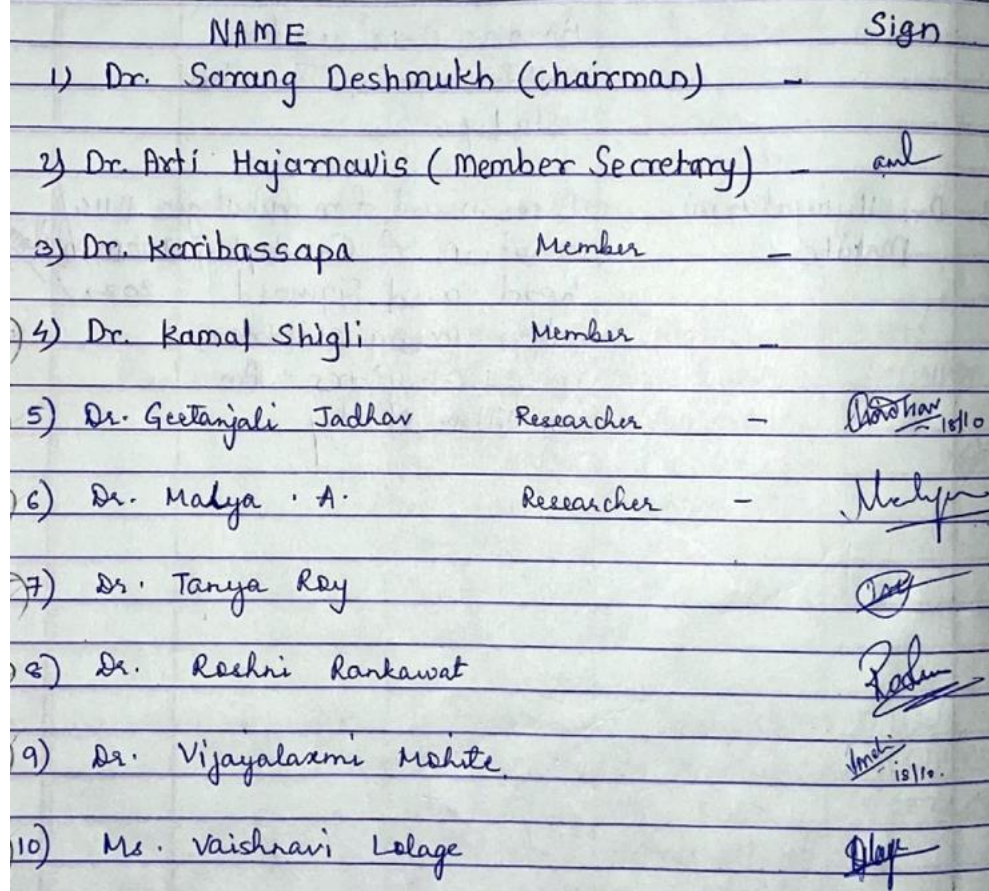 NAME Sign
1) Dr. Sarang Deshmukh (chairman) -
2) Dr. Arti Hajarnavis (Member Secretary) -
3) Dr. Karibassapa Member -
4) Dr. Kamal Shigli Member -
5) Dr. Geetanjali Jadhav Researcher - 18/10
6) Dr. Malya . A. Researcher -
7) Dr. Tanya Roy
8) Dr. Roshni Rankawat
9) Dr. Vijayalaxmi Mohite. 18/10.
10) Ms. Vaishnavi Lolage